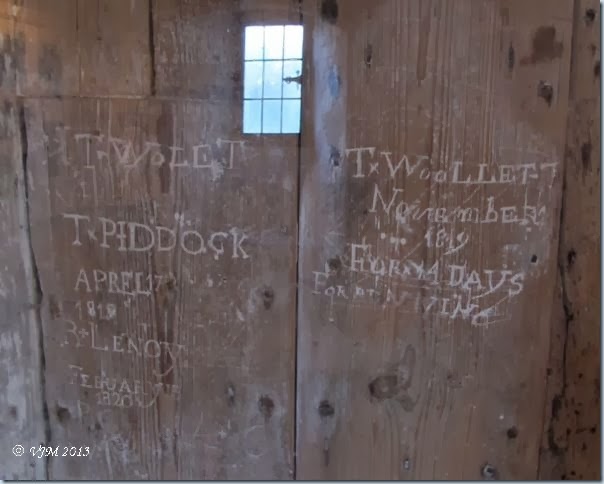 T × WOLLET
T × PIDDOCK
APREL 17
1819
R × LENOY
FEBUARY
1820
T × WOOLLETT
November
1819
FOR 14 DAYS
FOR
© VJM 2013